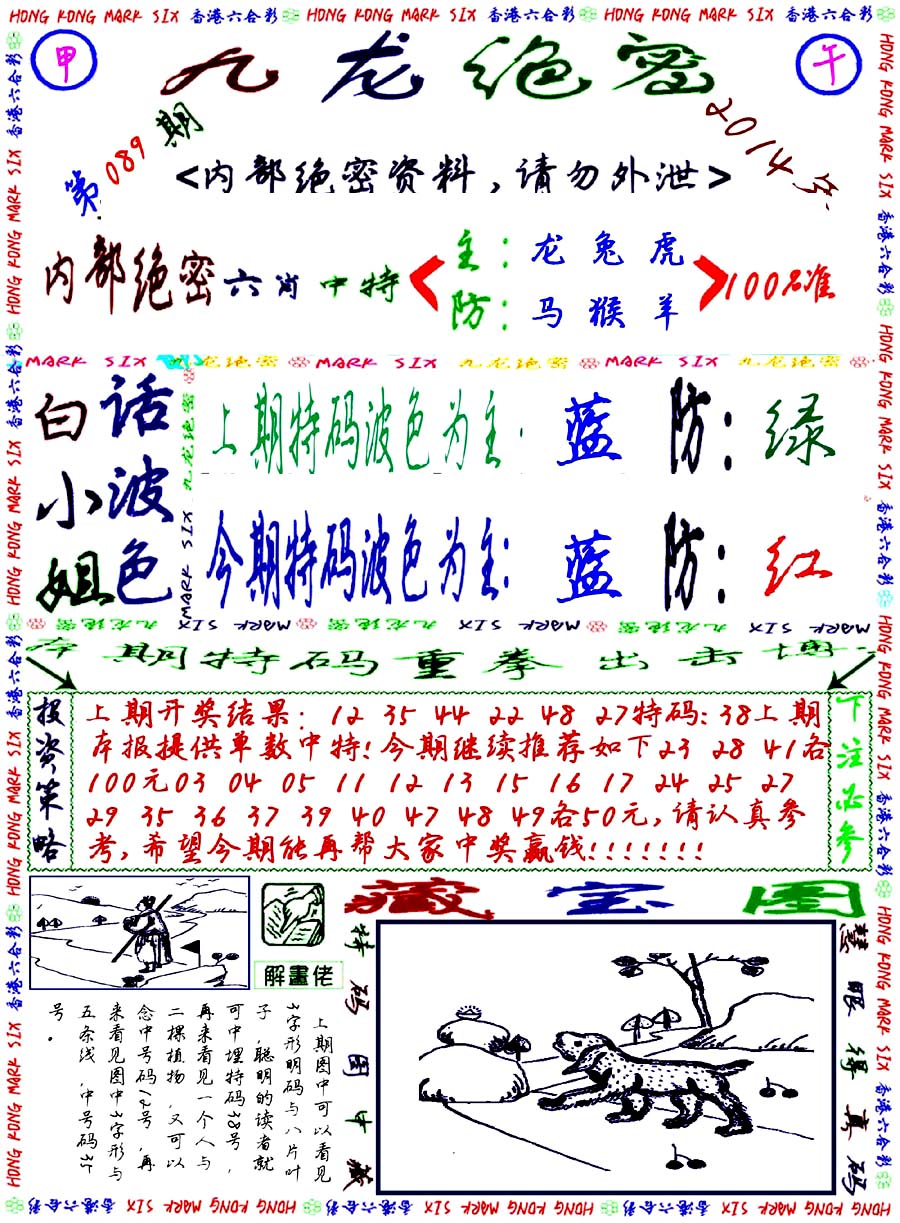 HONG KONG MARK SIX 香港六合彩 HONG KONG MARK SIX 香港六合彩 HONG KONG MARK SIX 香港六合彩
甲
九龙绝密
午
第089期
2014年
<内部绝密资料,请勿外泄>
内部绝密六肖中特
主:龙兔虎
防:马猴羊
100%准
MARK SIX 九龙绝密 MARK SIX 九龙绝密 MARK SIX 九龙绝密
白话
小波
姐色
上期特码波色为主:蓝 防:绿
今期特码波色为主:蓝 防:红
九龙绝密 MARK SIX 九龙绝密 MARK SIX 九龙绝密 MARK SIX
本期特码重拳出击博
投资策略
上期开奖结果:12 35 44 22 48 27特码:38上期
本报提供单数中特!今期继续推荐如下23 28 41各
100元03 04 05 11 12 13 15 16 17 24 25 27
29 35 36 37 39 40 47 48 49各50元,请认真参
考,希望今期能再帮大家中奖赢钱!!!!!!!
下注必参
藏宝图
解畫佬
特码图中藏
慧眼得真码
上期图中可以看见
3字形明码与八片叶
子,聪明的读者就
可中埋特码38号,
再来看见一个人与
二棵植物,又可以
念中号码12号,再
来看见图中3字形与
五条线,中号码35
号.
HONG KONG MARK SIX 香港六合彩 HONG KONG MARK SIX 香港六合彩 HONG KONG MARK SIX 香港六合彩